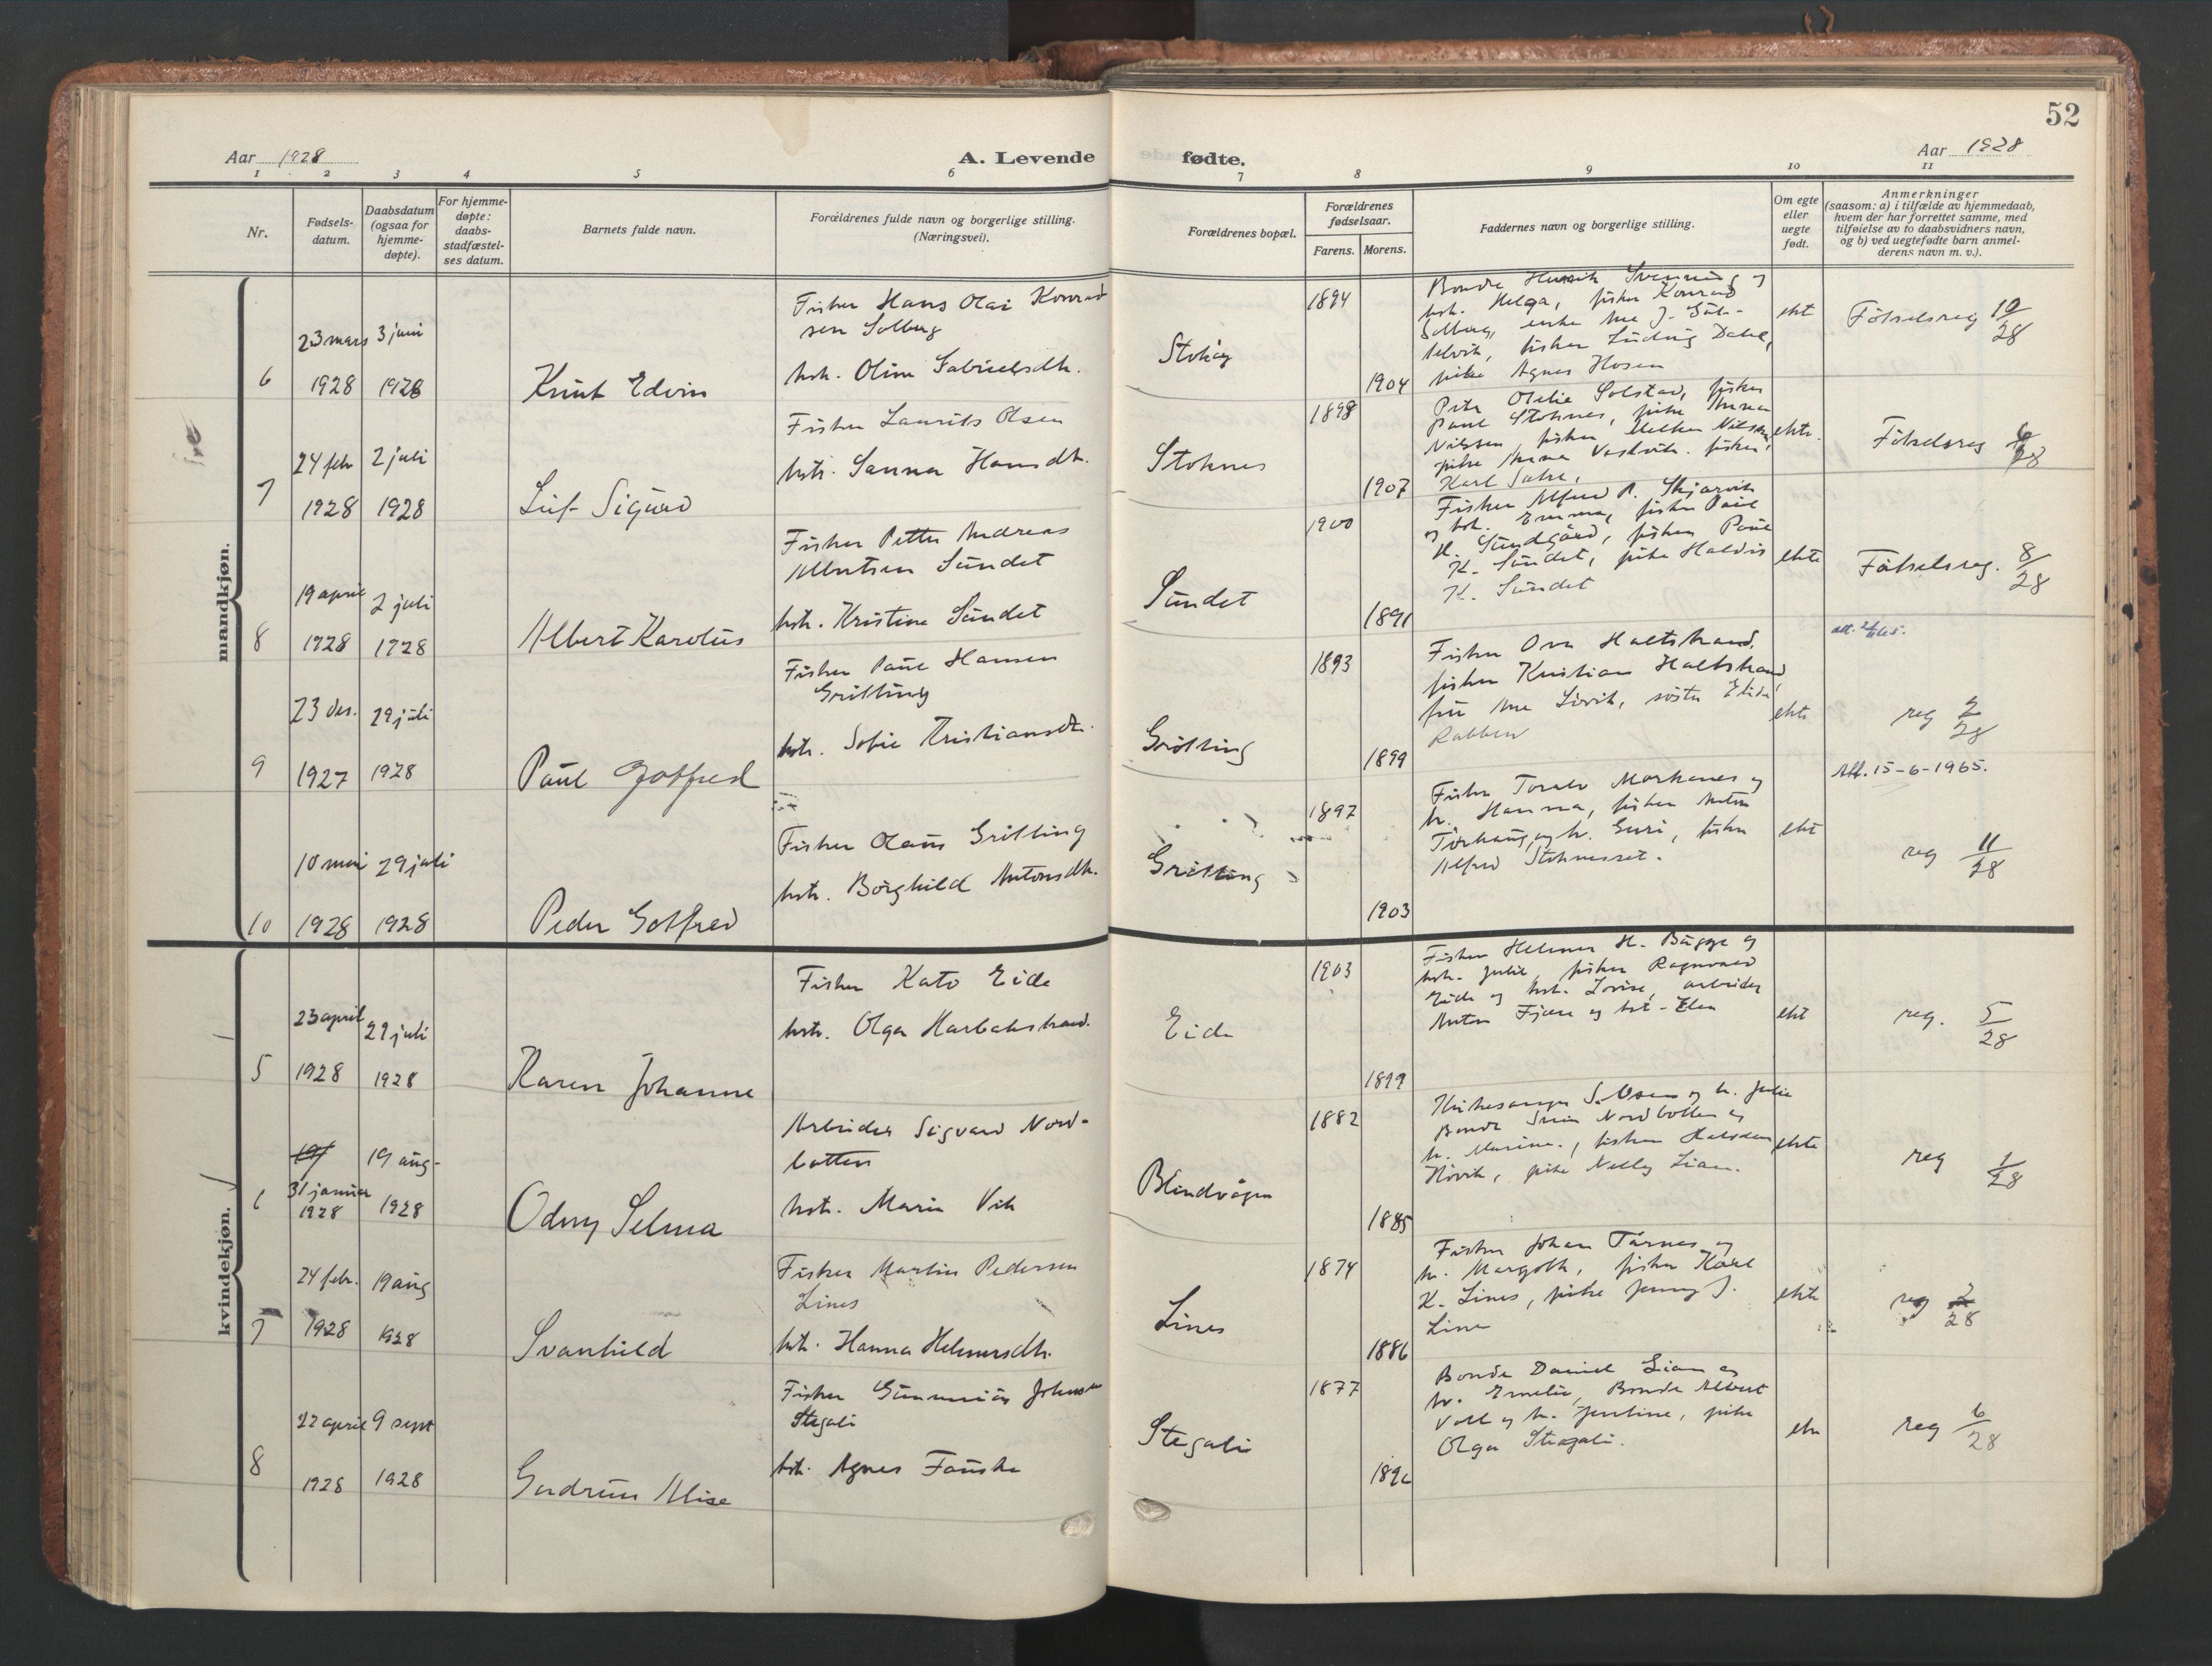 52
Aar 1928
A. Levende
fødte.
Aar 1928
1 2 3 4 5 6 7 8 9 10 11
Nr.
Fødsels-
datum.
Daabsdatum
(ogsaa for
hjemme-
døpte).
For hjemme-
døpte:
daabs-
stadfæstel-
ses datum.
Barnets fulde navn.
Forældrenes fulde navn og borgerlige stilling.
(Næringsvei).
Forældrenes bopæl.
Forældrenes
fødselsaar.
Farens. Morens.
Faddernes navn og borgerlige stilling.
Om egte
eller
uegte
født.
Anmerkninger
(saasom: a) i tilfælde av hjemmedaab,
hvem der har forrettet samme, med
tilføielse av to daabsvidners navn,
og b) ved uegtefødte barn anmel-
derens navn m. v.).
mandkjøn.
6
23 mars
1928
3 juni
1928
Knut Edvin
Fisker Hans Olai Konrad
sen Solberg
hstr. Oline Gabrielsdtr.
Stokøy
1894
1904
Helga, fisker Konrad
Solberg, enke
fisker Ludvig Dahl,
pike Agnes Hosen
ekt
Fötselsreg 10/28
7
24 febr
1928
2 juli
1928
Leif Sigurd
Fisker Laurits Olsen
hstr. Sanna Hansdtr.
Stoknes
1898
1907
Solstad, fisker
Paul Stoknes, pike Anna
Nilssen, fisker Nilssen
pike Anna fisker
Karl
ekte.
Fötselsreg 6/28
8
19 april
1928
2 juli
1928
Albert Karolus
Fisker Petter Andreas
Albertsen Sundet
hstr. Kristine Sundet
Sundet
1900
1891
Fisker Alfred P. Skjærvik
og hst. Emma, fisker Paul
H. Sundgård, fisker Paul
K. Sundet, pike Haldis
K. Sundet
ekte
Fötselsreg. 8/28
9
23 des.
1927
29 juli
1928
Paul Gotfred
Fisker Paul Hansen
Grötting
hstr. Sofie Kristiansdtr.
Grötting
1893
1899
Fisker Ove Haltstrand,
fisker Kristian Haltstrand
fru Ane söster
Rabben
ekte
reg 2/28
Att. 15-6-1965.
10
10 mai
1928
29 juli
1928
Peder Gotfred
Fisker Olaus Grötting
hstr. Borghild Antonsdtr.
Grötting
1897
1903
Fisker Toralv Morkanes og
h. Hanna, fisker Anton
Torhaug og h. Guri, fisker
Alfred Stoknesset.
ekt
reg 11/28
kvindekjøn.
5
23 april
1928
29 juli
1928
Karen Johanne
Fisker Kato Eide
hstr. Olga Harbakstrand.
Eide
1903
1899
Fisker Helmer H. Bugge og
hstr. Julie, fisker Ragnvald
Eide og hst. Lovise, arbeider
Anton Fjære og hst. Elen
ekt
reg. 5/28
6
31 januar
1928
19 aug.
1928
Odny Selma
Arbeider Sigvard Nord-
botten
hstr. Marie Vik
Blindvågen
1882
1885
Kirkesanger S. Osen og h. Julie
Bonde Nordbotten og
h. Marine., fisker Halvdan
Hövik, pike Nelly Lian.
ekte
reg 1/28
7
24 febr.
1928
19 aug
1928
Svanhild
Fisker Martin Pedersen
Lines
hstr. Hanna Helmersdtr.
Lines
1874
1886
Fisker Johan Tårnes og
h. Margoth, fisker Karl
K. Lines, pike Jenny J.
Lines
ekte
reg 2/28
8
22 april
1928
9 sept
1928
Gudrun Alise
Fisker Gunnerius Johnsen
Stegali
hstr. Agnes Fauske
Stegali
1877
Bonde Daniel Lian og
h. Emelie, Bonde Albert
Voll og h. Jentine, pike
Olga Stegali.
reg 6/28